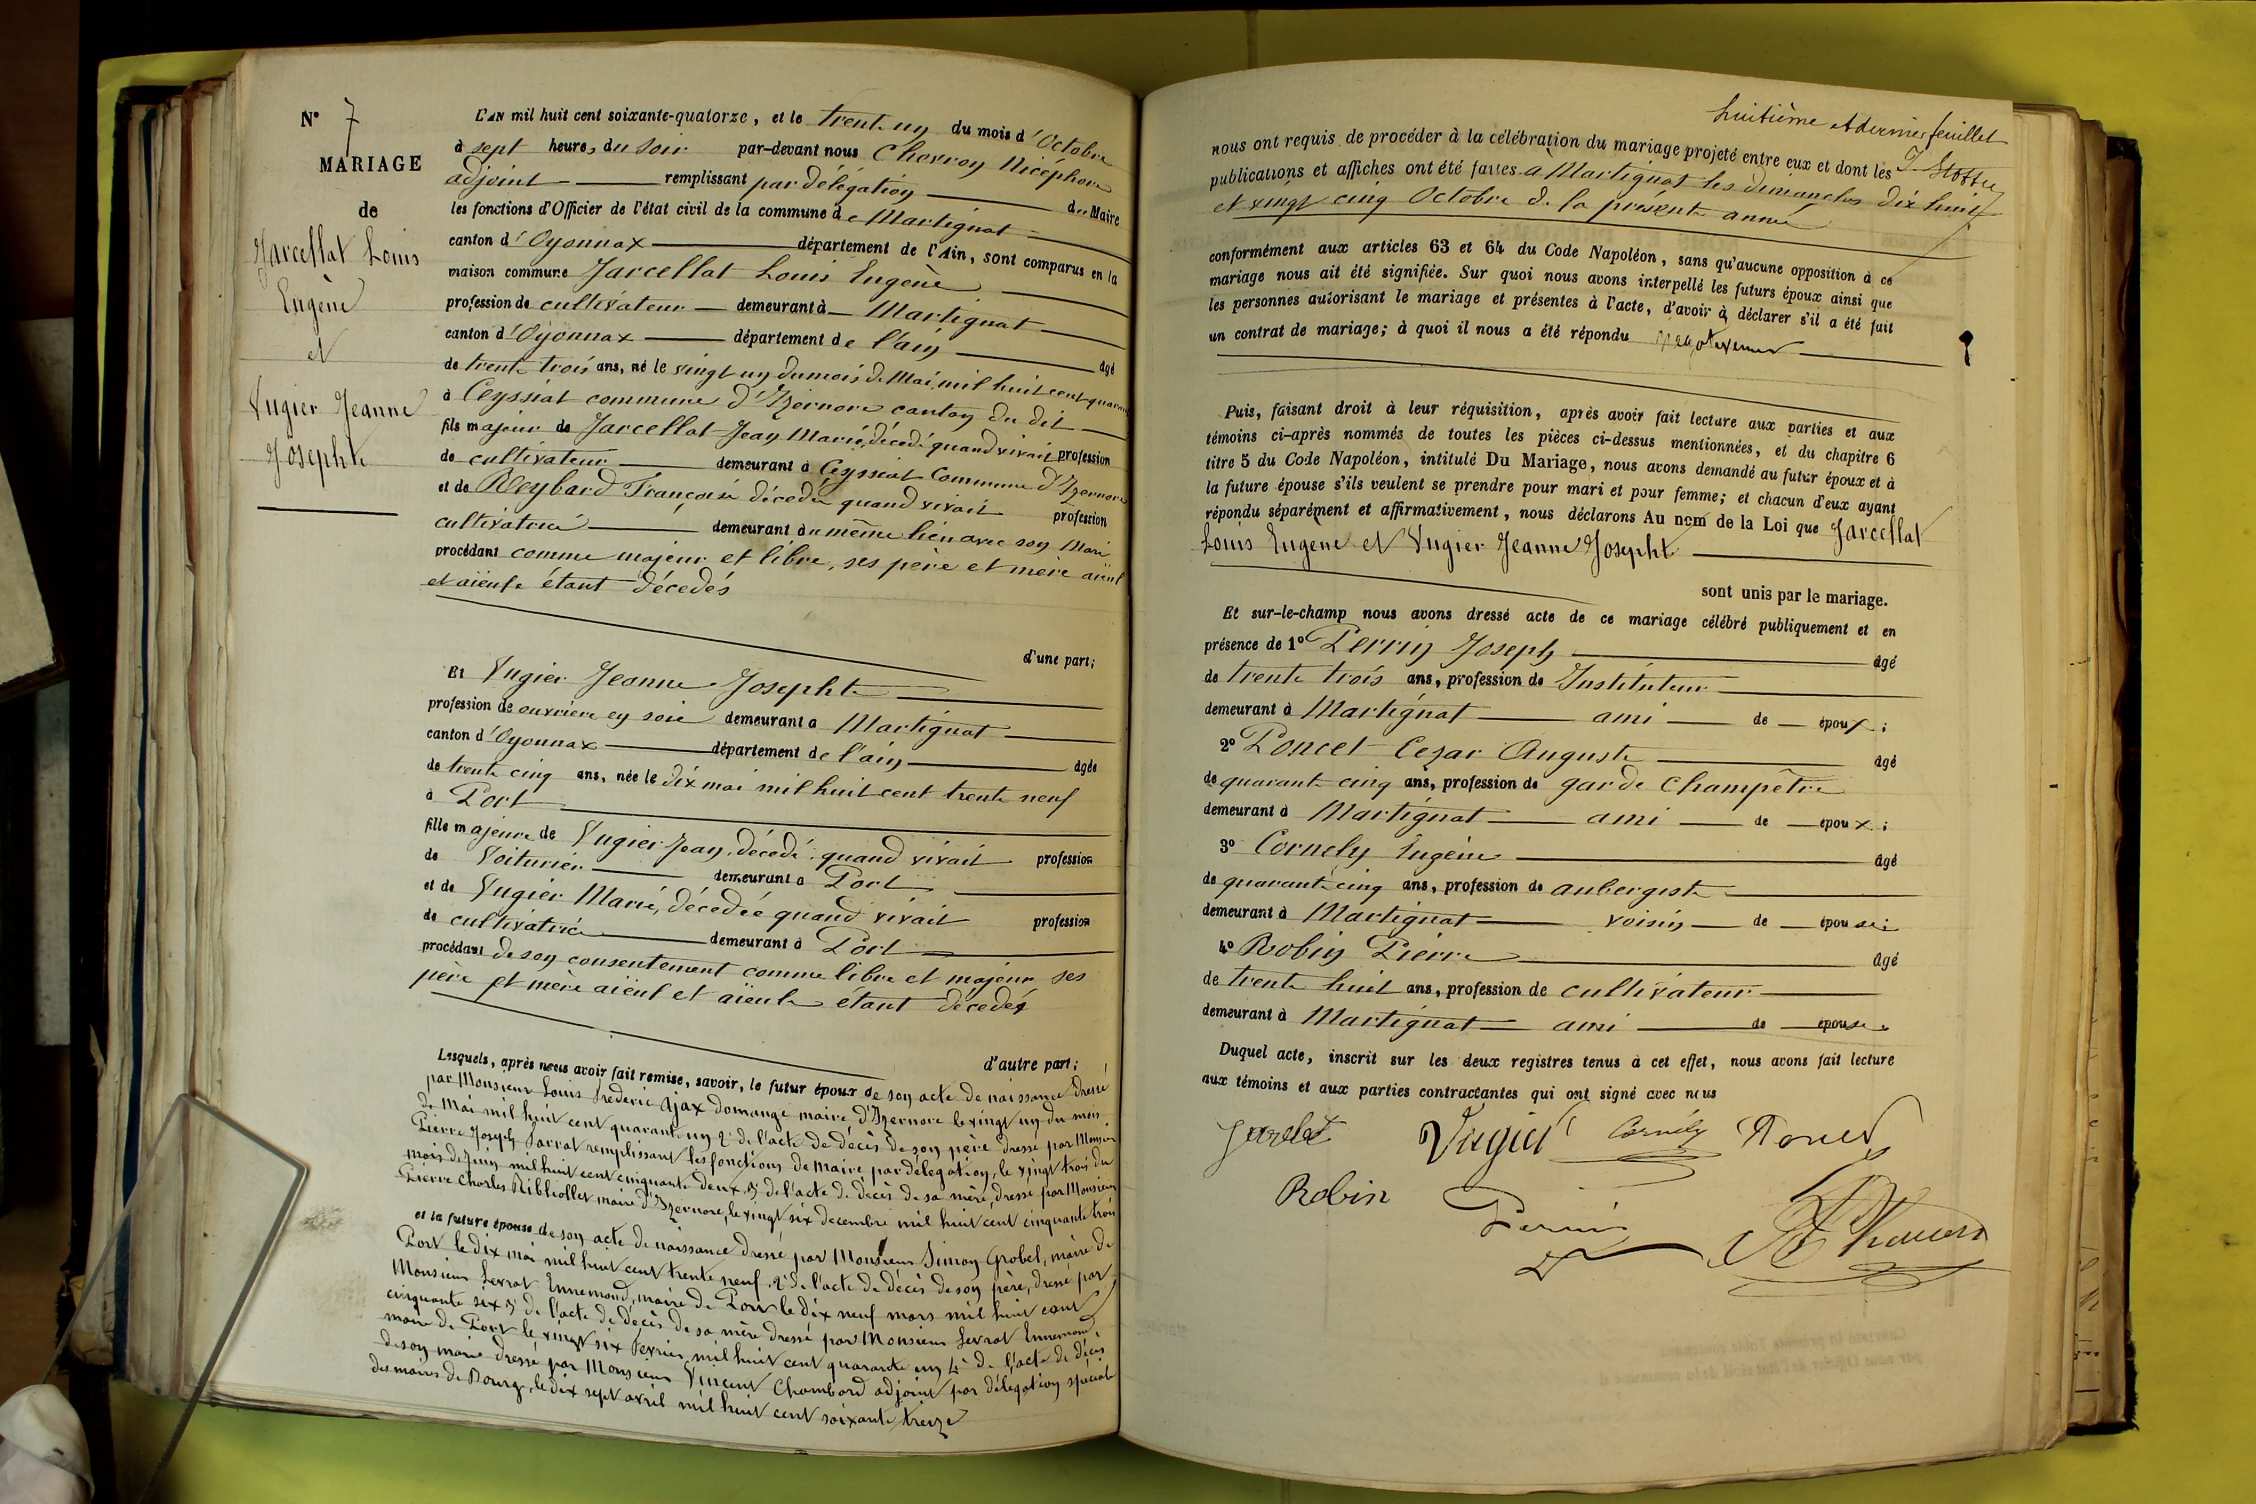 N° 7
MARIAGE
de
Jarcellat Louis
Eugène
et
Vugier Jeanne
Josephte
L'AN mil huit cent soixante-quatorze, et le trente un du mois d'Octobre
à sept heures du soir par-devant nous Chevron Nicéphore
adjoint remplissant par délégation du Maire
les fonctions d'Officier de l'état civil de la commune de Martignat
canton d'Oyonnax département de l'Ain, sont comparus en la
maison commune Jarcellat Louis Eugène
profession de cultivateur demeurant à Martignat
canton d'Oyonnax département de l'ain âgé
de trente trois ans, né le vingt un du mois de Mai mil huit cent quarante
à Ceyssiat commune d'Izernore canton du dit
fils majeur de Jarcellat Jean Marie, décédé quand vivait profession
de cultivateur demeurant à Ceyssiat Commune d'Izernore
et de Reybard Françoise décedée quand vivait profession
cultivatrice demeurant au même lieu avec son Mari
procédant comme majeur et libre, ses père et mère aïeul
et aïeule étant décedés
d'une part;
Et Vugier Jeanne Josephte
profession de ouvrière en soie demeurant a Martignat
canton d'Oyonnax département de l'ain âgée
de trente cinq ans, née le dix mai mil huit cent trente neuf
à Port
fille majeure de Vugier Jean, décedé quand vivait profession
de Voiturier demeurant a Port
et de Vugier Marie, décedée quand vivait profession
de cultivatrice demeurant à Port
procédant de son consentement comme libre et majeur ses
père et mère aieul et aïeule étant décedés
d'autre part;
Lesquels, après nous avoir fait remise, savoir, le futur époux de son acte de naissance dressé
par Monsieur Louis Frederic Ajax Domange maire d'Izernore le vingt un du mois
de Mai mil huit cent quarante un 2° de l'acte de décès de son père dressé par Monsieur
Pierre Joseph Jarrat remplissant les fonctions de maire par délegation, le vingt trois du
mois de Juin mil huit cent cinquante deux, 3° de l'acte de décès de sa mère, dressé par Monsieur
Pierre Charles Ribliollet maire d'Izernore, le vingt six decembre mil huit cent cinquante trois
et la future épouse de son acte de naissance dressé par Monsieur Simon Grobel, maire de
Port le dix mai mil huit cent trente neuf 2° de l'acte de décès de son père, dressé par
Monsieur Levrat Ennemond, maire de Port le dix neuf mars mil huit cent
cinquante six 3° de l'acte de décès de sa mère dressé par Monsieur Levrat Ennemond,
maire de Port le vingt six Fevrier mil huit cent quarante un 4° de l'acte de décès
de son marie dressé par Monsieur Vincent Chambard adjoint par délegation spéciale
des maires de Bourg, le dix sept avril mil huit cent soixante treize
huitième et dernier feuillet
nous ont requis de procéder à la célébration du mariage projeté entre eux et dont les
publications et affiches ont été faites à Martignat les dimanches dix huit
et vingt cinq Octobre de la présente année
conformément aux articles 63 et 64 du Code Napoléon, sans qu'aucune opposition à ce
mariage nous ait été signifiée. Sur quoi nous avons interpellé les futurs époux ainsi que
les personnes autorisant le mariage et présentes à l'acte, d'avoir à déclarer s'il a été fait
un contrat de mariage; à quoi il nous a été répondu négativement
Puis, faisant droit à leur réquisition, après avoir fait lecture aux parties et aux
témoins ci-après nommés de toutes les pièces ci-dessus mentionnées, et du chapitre 6
titre 5 du Code Napoléon, intitulé Du Mariage, nous avons demandé au futur époux et à
la future épouse s'ils veulent se prendre pour mari et pour femme; et chacun d'eux ayant
répondu séparément et affirmativement, nous déclarons Au nom de la Loi que Jarcellat
Louis Eugène et Vugier Jeanne Josephte
sont unis par le mariage.
Et sur-le-champ nous avons dressé acte de ce mariage célébré publiquement et en
présence de 1° Perrin Joseph âgé
de trente trois ans, profession de Instituteur
demeurant à Martignat ami de époux;
2° Poncet Cezar Auguste âgé
de quarante cinq ans, profession de garde Champêtre
demeurant à Martignat ami de époux;
3° Cornely Eugène âgé
de quarante cinq ans, profession de aubergiste
demeurant à Martignat voisin de épouse;
4° Robin Pierre âgé
de trente huit ans, profession de cultivateur
demeurant à Martignat ami de épouse
Duquel acte, inscrit sur les deux registres tenus à cet effet, nous avons fait lecture
aux témoins et aux parties contractantes qui ont signé avec nous
Vugier Cornély
Robin Perrin